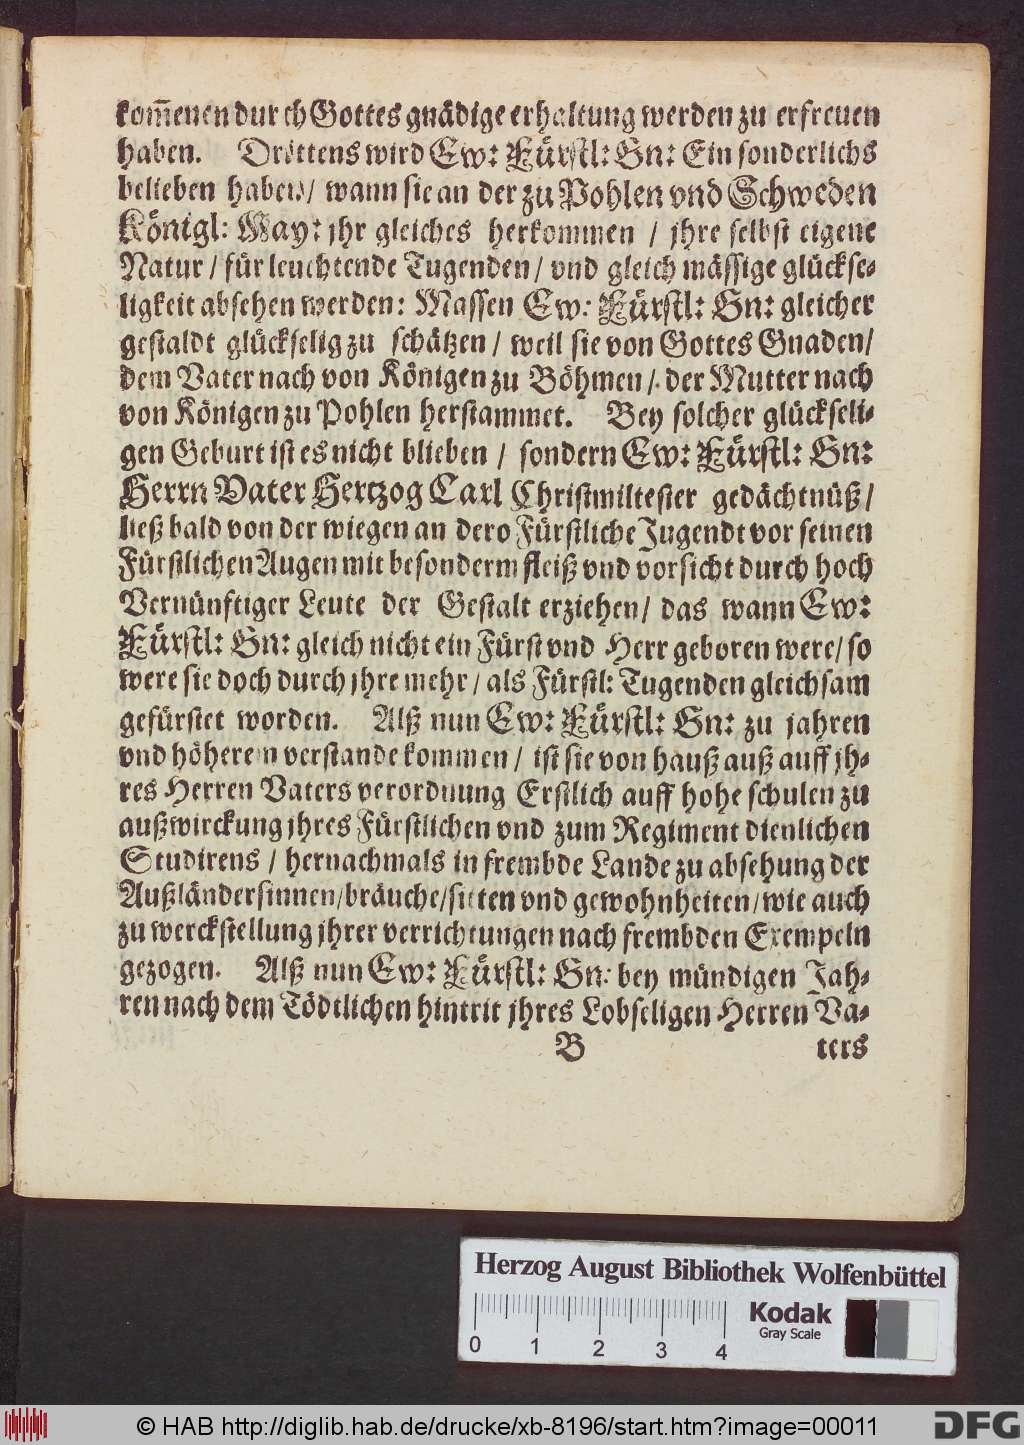 kom̅enen durch Gottes gnädige erhaltung werden zu erfreuen
haben. Drittens wird Ew: Fürstl: Gn: Ein sonderlichs
belieben haben / wann sie an der zu Pohlen vnd Schweden
Königl: May: jhr gleiches herkommen / jhre selbst eigene
Natur / für leuchtende Tugenden / vnd gleich mässige glückse-
ligkeit absehen werden: Massen Ew: Fürstl: Gn: gleicher
gestaldt glückselig zu schätzen / weil sie von Gottes Gnaden /
dem Vater nach von Königen zu Böhmen / der Mutter nach
von Königen zu Pohlen herstammet. Bey solcher glückseli-
gen Geburt ist es nicht blieben / sondern Ew: Fürstl: Gn:
Herrn Vater Hertzog Carl Christmiltester gedächtnüß /
ließ bald von der wiegen an dero Fürstliche Jugendt vor seinen
Fürstlichen Augen mit besonderm fleiß vnd vorsicht durch hoch
Vernünftiger Leute der Gestalt erziehen / das wann Ew:
Fürstl: Gn: gleich nicht ein Fürst vnd Herr geboren were / so
were sie doch durch jhre mehr / als Fürstl: Tugenden gleichsam
gefürstet worden. Alß nun Ew: Fürstl: Gn: zu jahren
vnd höherem verstande kommen / ist sie von hauß auß auff jh-
res Herren Vaters verordnung Erstlich auff hohe schulen zu
außwirckung jhres Fürstlichen vnd zum Regiment dienlichen
Studirens / hernachmals in frembde Lande zu absehung der
Außländer sinnen / bräuche / sitten vnd gewohnheiten / wie auch
zu werckstellung jhrer verrichtungen nach frembden Exempeln
gezogen. Alß nun Ew: Fürstl: Gn: bey mündigen Jah-
ren nach dem Tödtlichen hintrit jhres Lobseligen Herren Va-
B ters
Herzog August Bibliothek Wolfenbüttel
0 1 2 3 4
Kodak
Gray Scale
© HAB http://diglib.hab.de/drucke/xb-8196/start.htm?image=00011
DFG